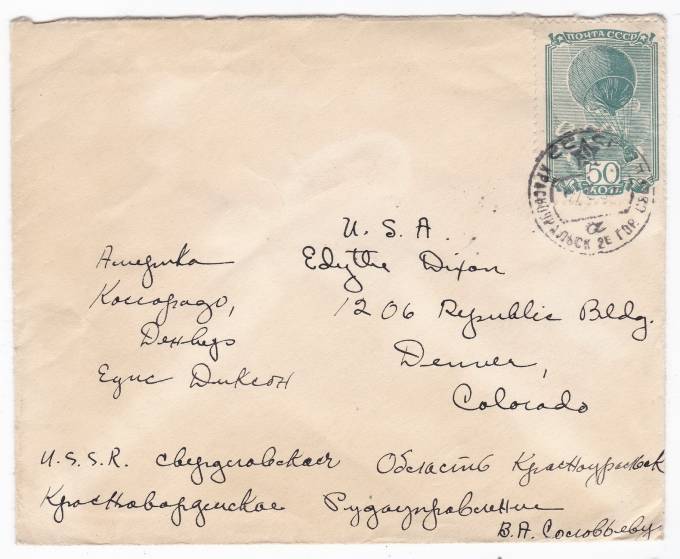 ПОЧТА СССР
50
КОП.
КРАСНОУРАЛЬСК 2Е ГОР. СВ
U. S. A
Америка
Edythe Dixon
Колорадо,
1206 Republic Bldg.
Денвер
Denver,
Едис Диксон
Colorado
U.S.S.R. Свердловская Область Красноуральск
Красногвардейское Рудоуправление
В.А. Соловьеву